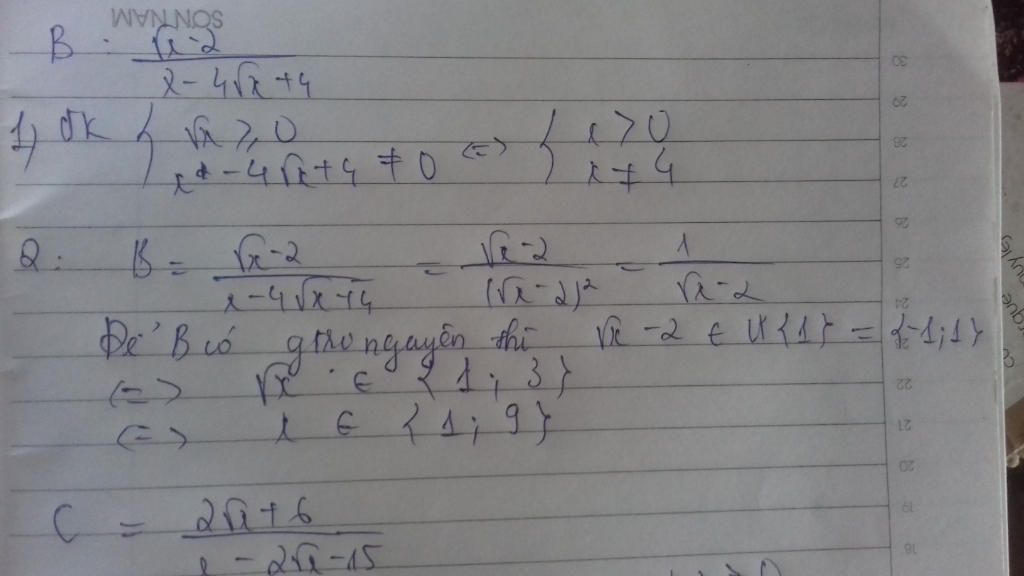 SƠN NAM
B = \frac{\sqrt{x}-2}{x-4\sqrt{x}+4}
1) ĐK { \sqrt{x} ⩾ 0 ; x - 4\sqrt{x}+4 ≠ 0 <=> { x > 0 ; x ≠ 4
2: B = \frac{\sqrt{x}-2}{x-4\sqrt{x}+4} = \frac{\sqrt{x}-2}{(\sqrt{x}-2)^2} = \frac{1}{\sqrt{x}-2}
Để B có nguyên thì \sqrt{x} - 2 ∈ Ư{1} = {-1;1}
<=> \sqrt{x} ∈ {1; 3}
<=> x ∈ {1; 9}
C = \frac{2\sqrt{x}+6}{x-2\sqrt{x}-15}
30
29
28
27
26
25
24
23
22
21
20
19
18